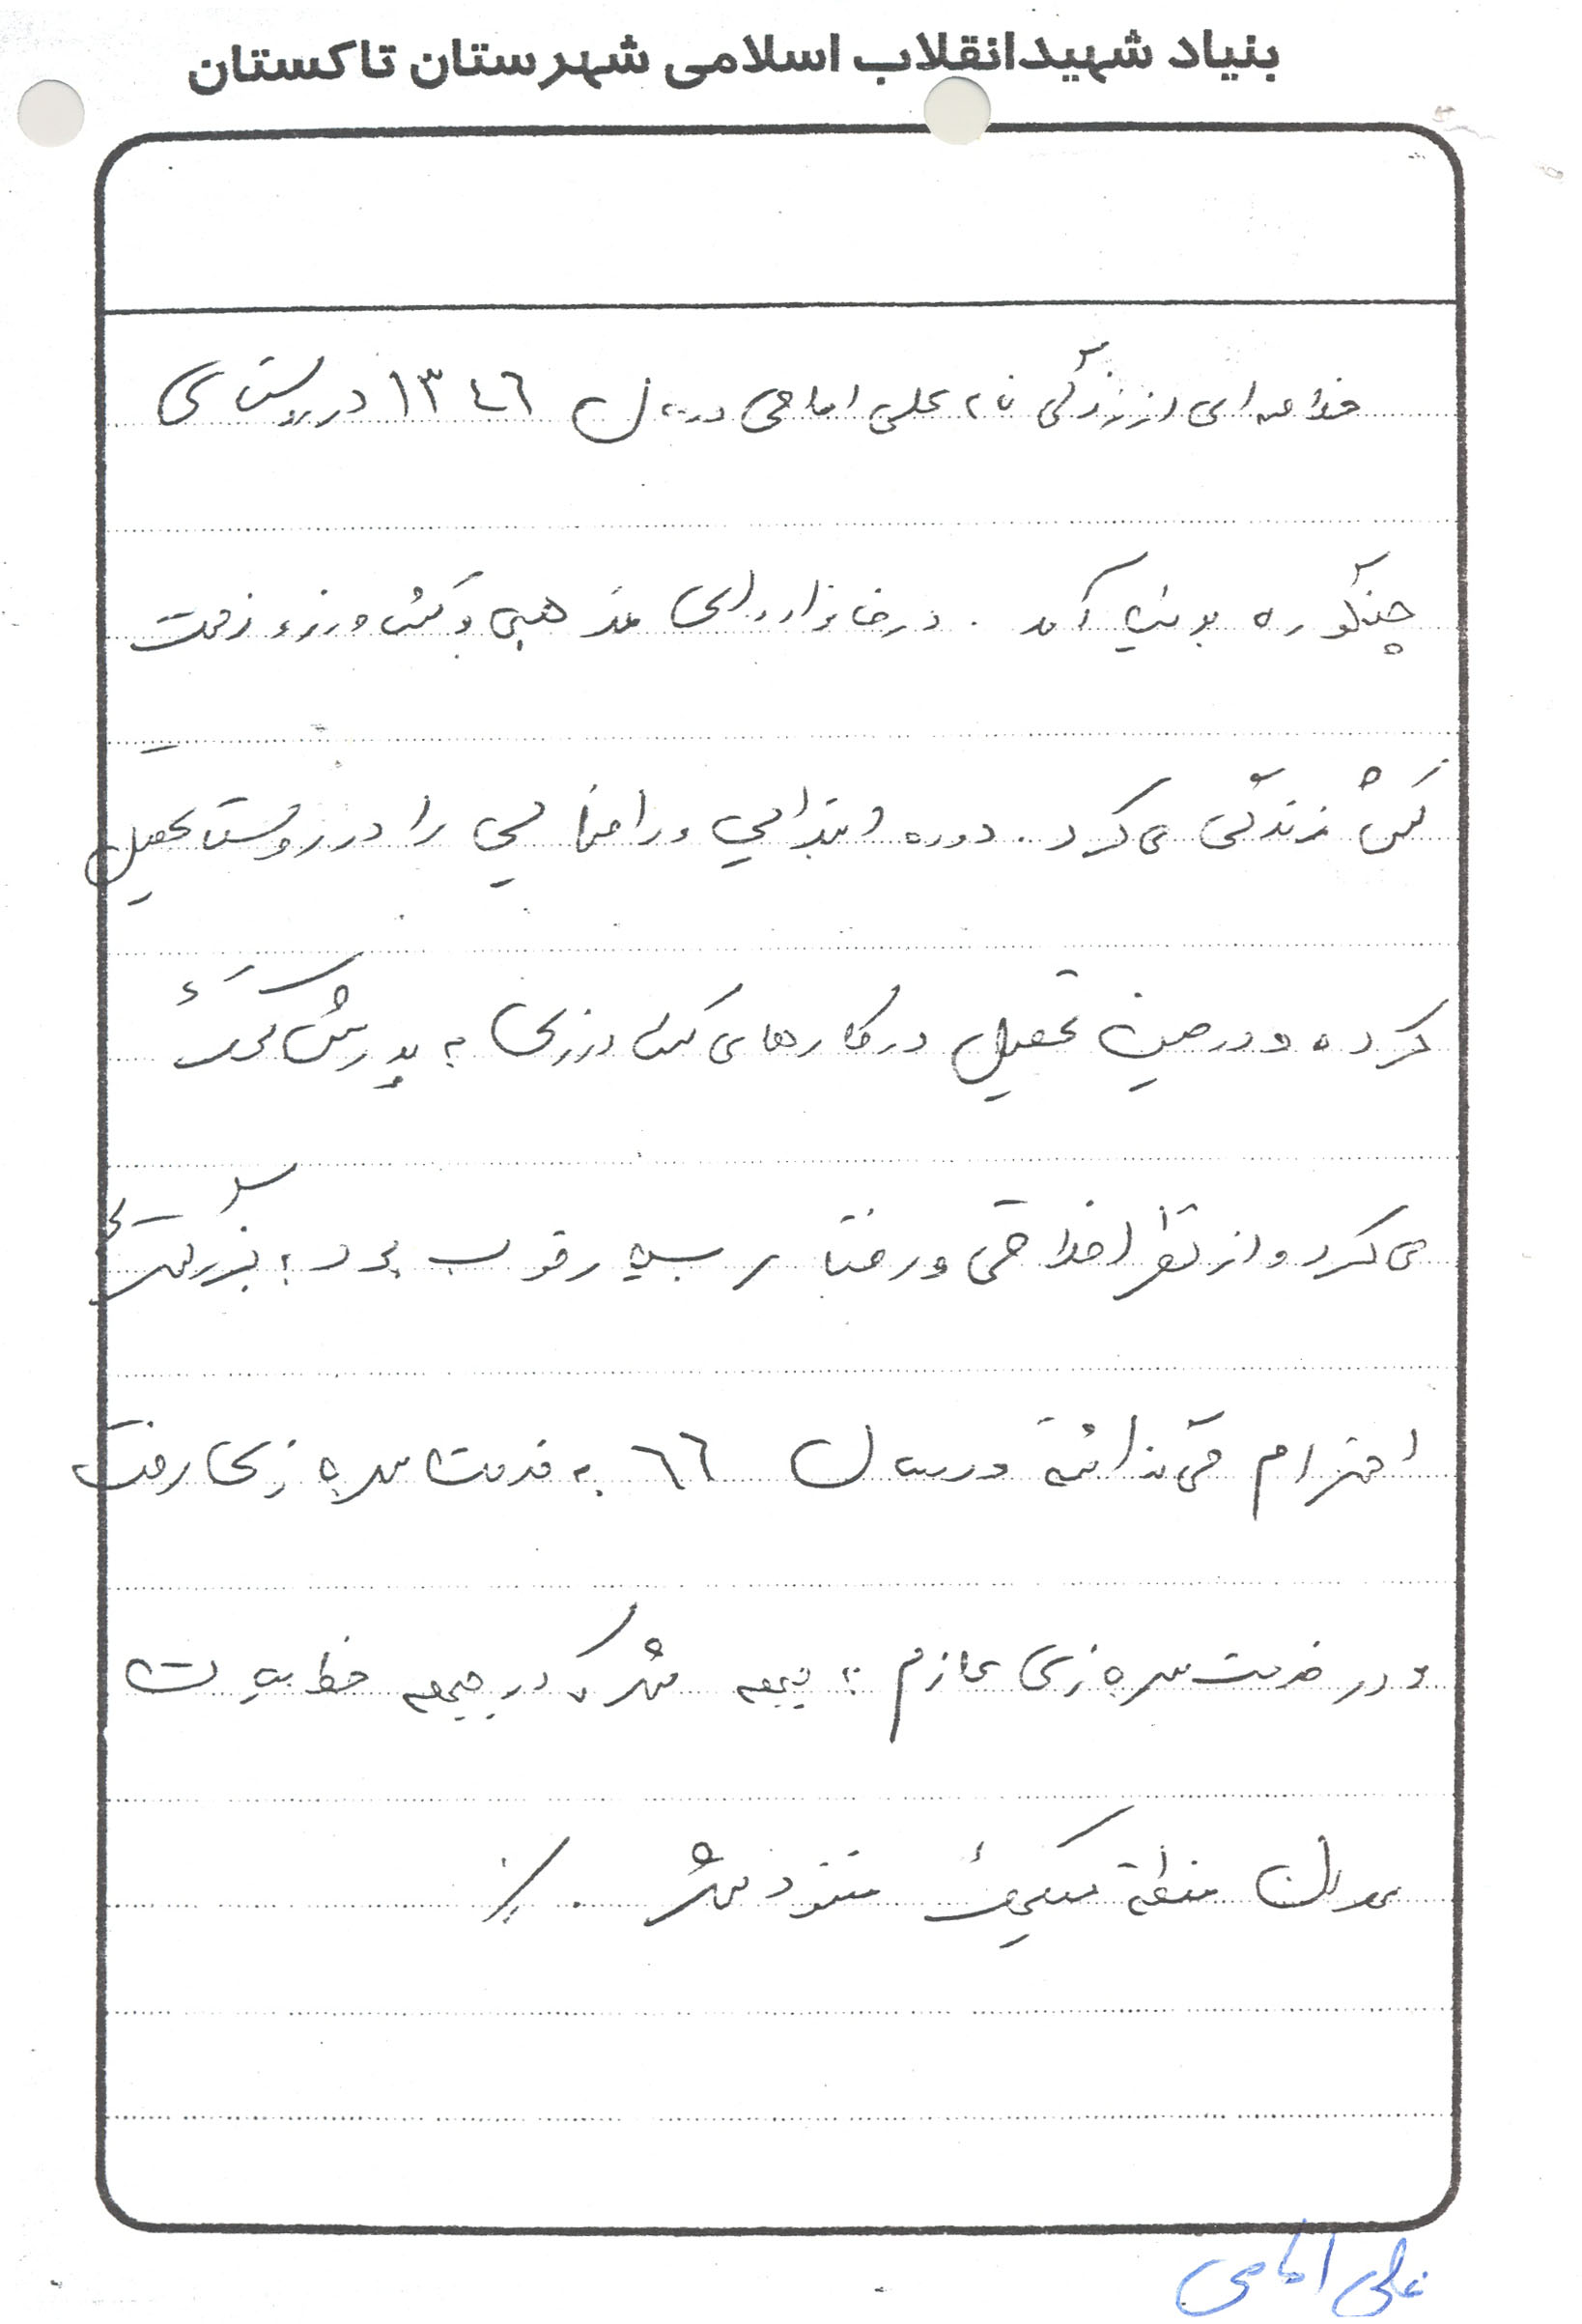 بنیاد شهید انقلاب اسلامی شهرستان تاکستان
خلاصه ای از زندگی علی امامی در سال ۱۳٤٦ در روستای
چنگوره بدنیا آمد . در خانواده ای مذهبی و کشاورز و زحمت
کش زندگی می کرد . دوره ابتدایی و راهنمایی را در روستا تحصیل
کرده و در حین تحصیل در کارهای کشاورزی به پدرش کمک
می کرد و از نظر اخلاقی و رفتار بسیار خوب بود به بزرگترها
احترام می گذاشته در سال ٦٦ به خدمت سربازی رفت
و در خدمت سربازی عازم جبهه شد که در جبهه
منطقه مفقود شد . /
علی امامی